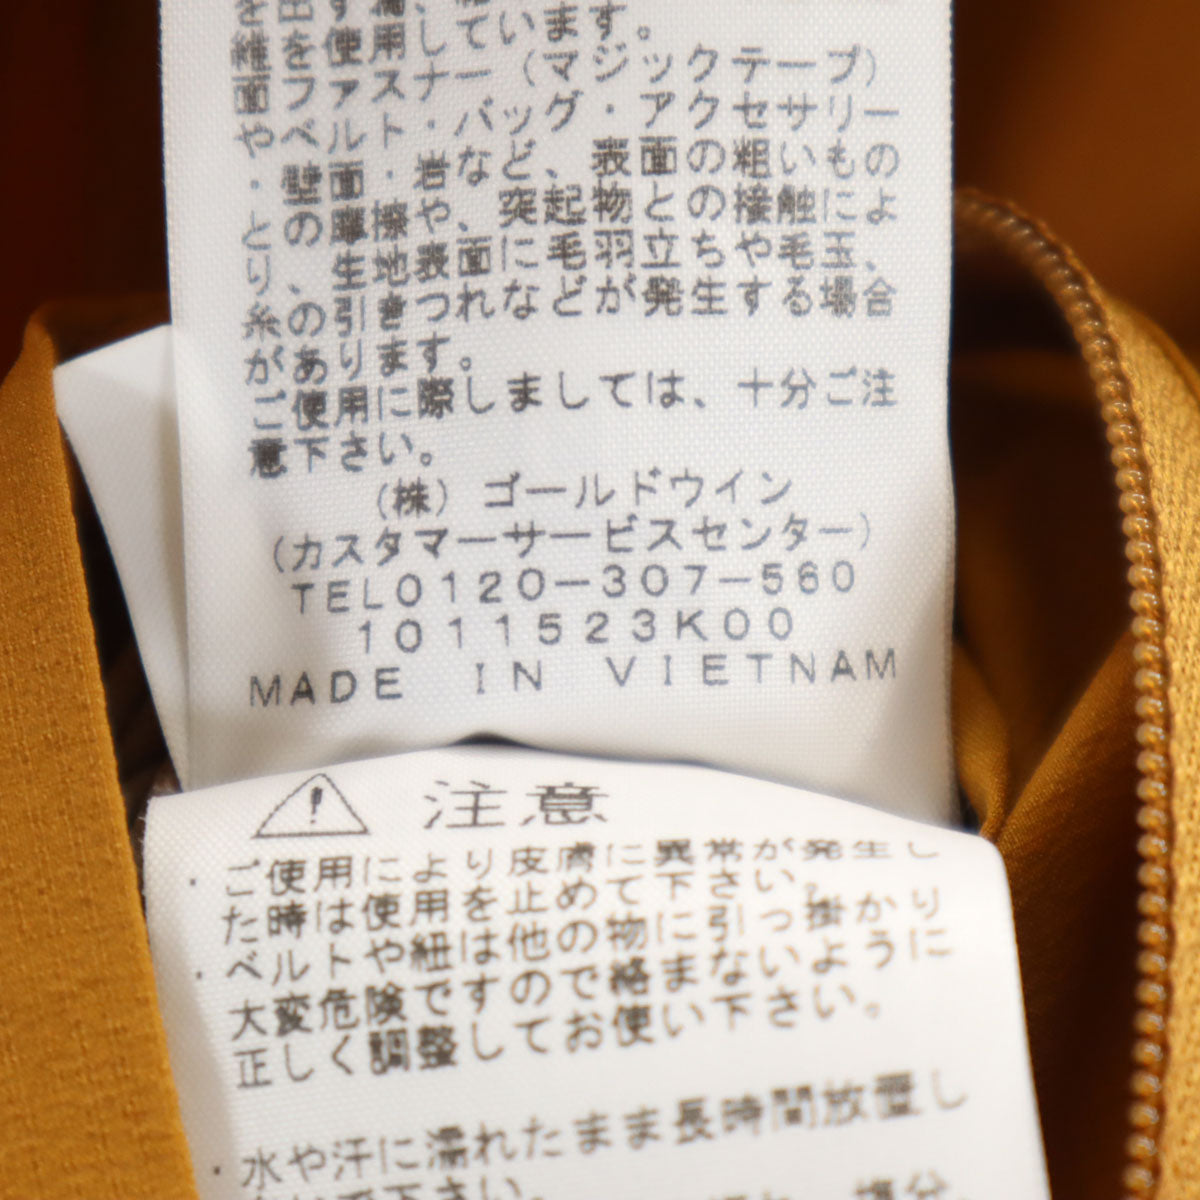 を使用しています。
面ファスナー（マジックテープ）
や・ベルト・バッグ・アクセサリー
・壁面・岩など、表面の粗いもの
との摩擦や、突起物との接触によ
り、生地表面に毛羽立ちや毛玉、
糸の引きつれなどが発生する場合
があります。
ご使用に際しましては、十分ご注
意下さい。
（株）ゴールドウイン
（カスタマーサービスセンター）
TEL0120-307-560
1011523K00
MADE IN VIETNAM
注意
・ご使用により皮膚に異常が発生し
た時は使用を止めて下さい。
・ベルトや紐は他の物に引っ掛かり
大変危険ですので絡まないように
正しく調整してお使い下さい。
・水や汗に濡れたまま長時間放置し
ないで下さい。
塩分